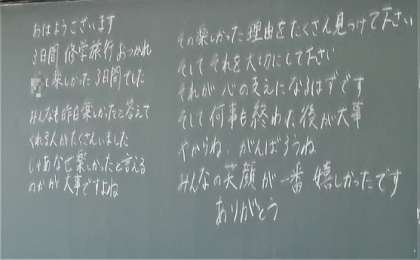 おはようございます
3日間 修学旅行 おつかれ
と楽しかった3日間でした
みんなも昨日楽しかったと答えて
くれる人がたくさんいました
じゃあなぜ楽しかったと言える
のかが大事ですよね
その楽しかった理由をたくさん見つけて下さい
そして それを大切にして下さい
それが 心の支えになるはずです
そして 何事も終わった後が大事
やからね、がんばろうね
みんなの笑顔が一番 嬉しかったです
ありがとう